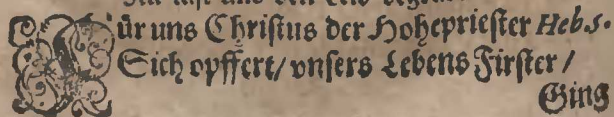 Für uns Christus der Hohepriester Heb 5.
Sich opffert/ vnsers Lebens Firster /
Ging